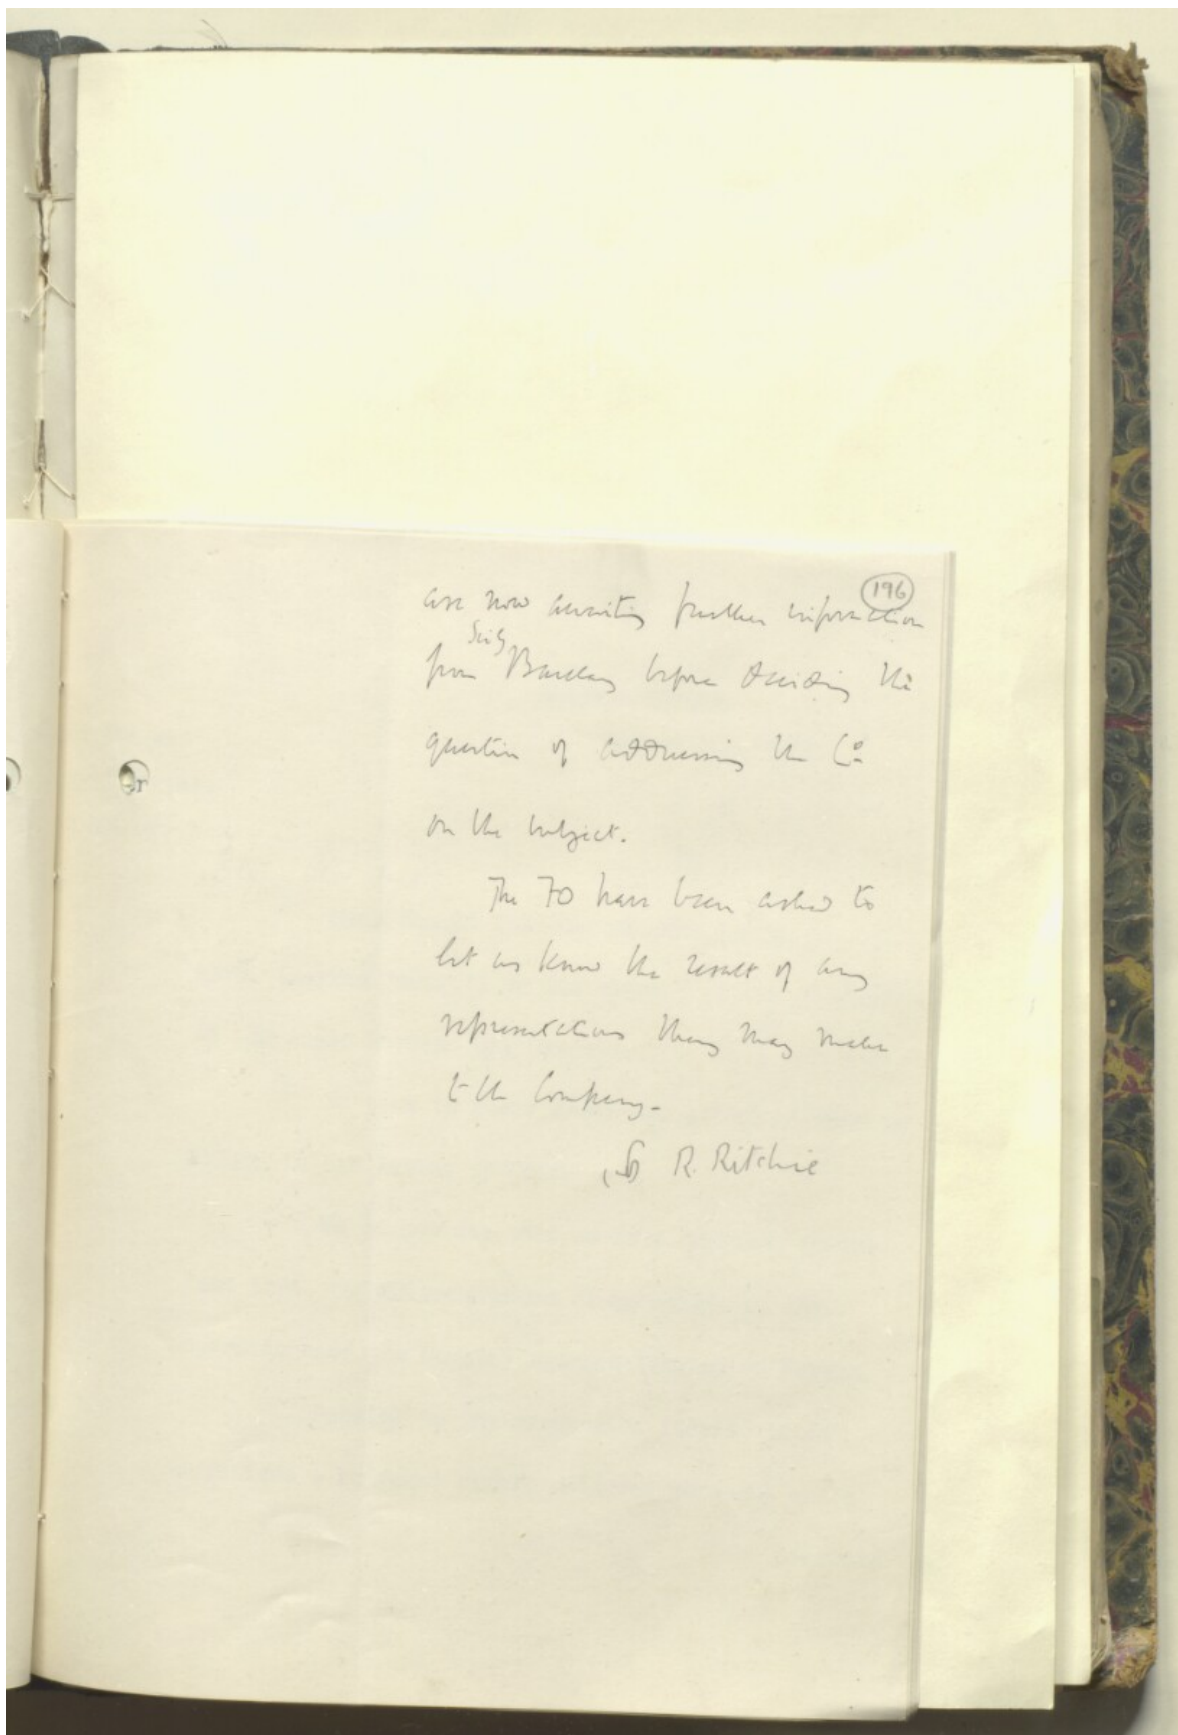 196
are now awaiting further information
from Sir G Barclay before deciding the
question of addressing the Co
on the subject.
The FO have been asked to
let us know the result of any
representations they may make
to the Company.
R. Ritchie